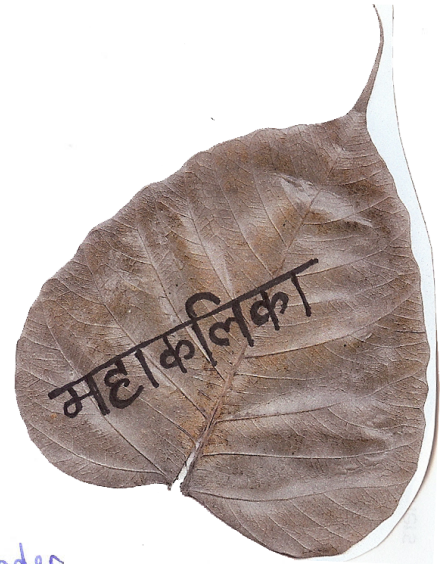 महाकलिका